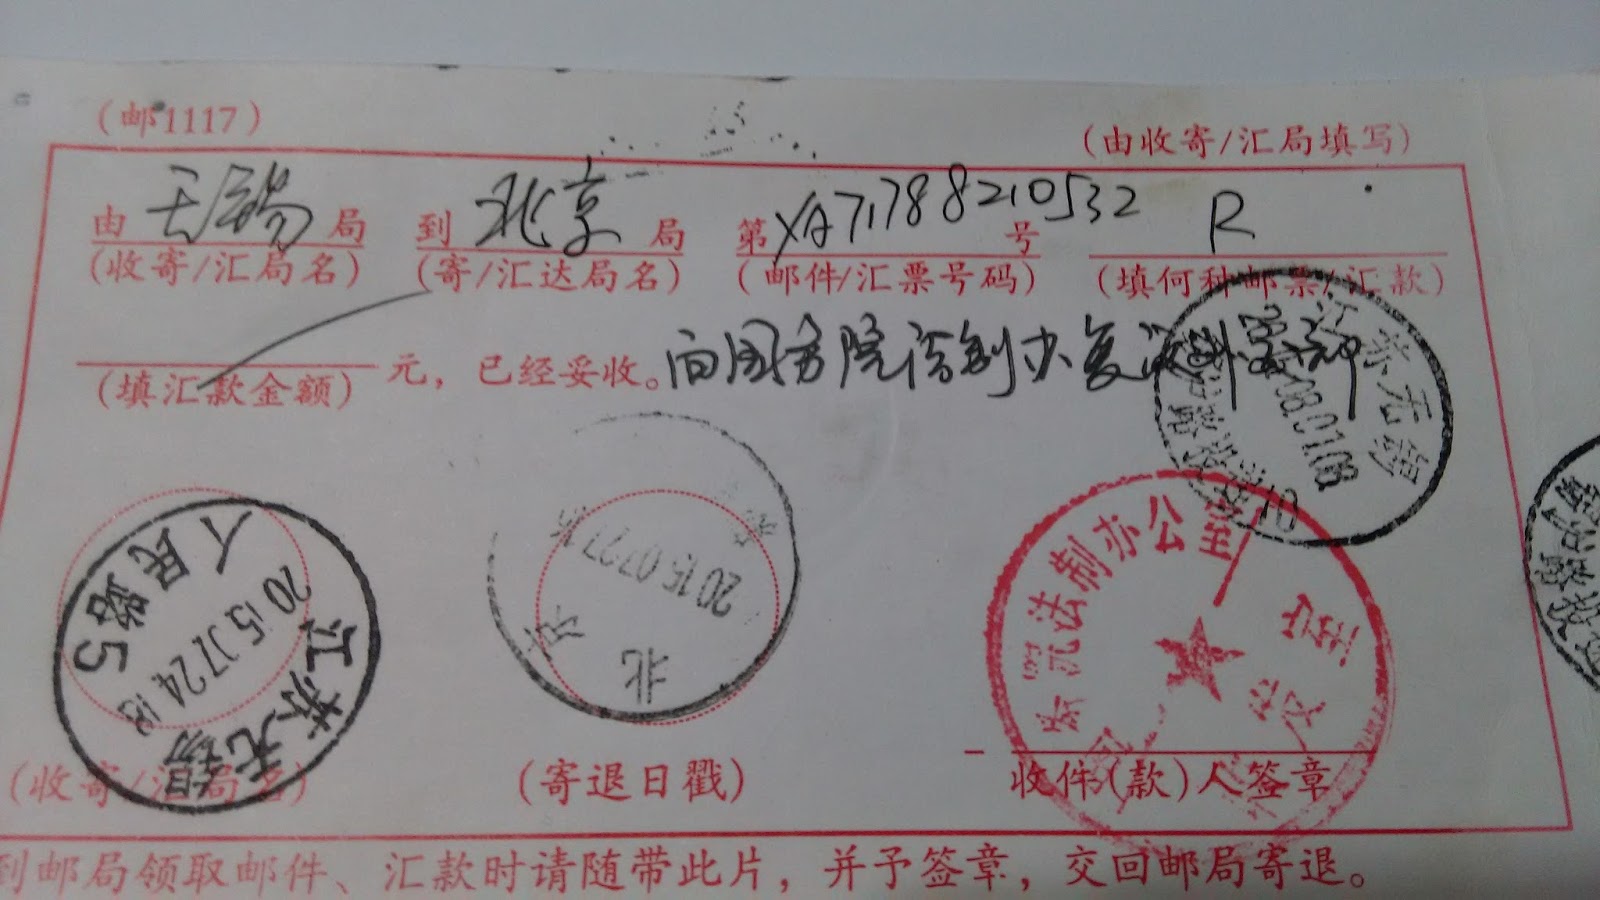 (邮1117)
(由收寄/汇局填写)
由 无锡 局 到 北京 局 第 XA71788210532 号 R
(收寄/汇局名) (寄/汇达局名) (邮件/汇票号码) (填何种邮票/汇款)
元，已经妥收。向国务院法制办复议
(填汇款金额)
江苏无锡
2015.07.24.18
人民路5
北京
2015.07.27
法制办公室
江苏无锡
08.01.08
(收寄/汇局名) (寄退日戳) 收件(款)人签章
到邮局领取邮件、汇款时请随带此片，并予签章，交回邮局寄退。